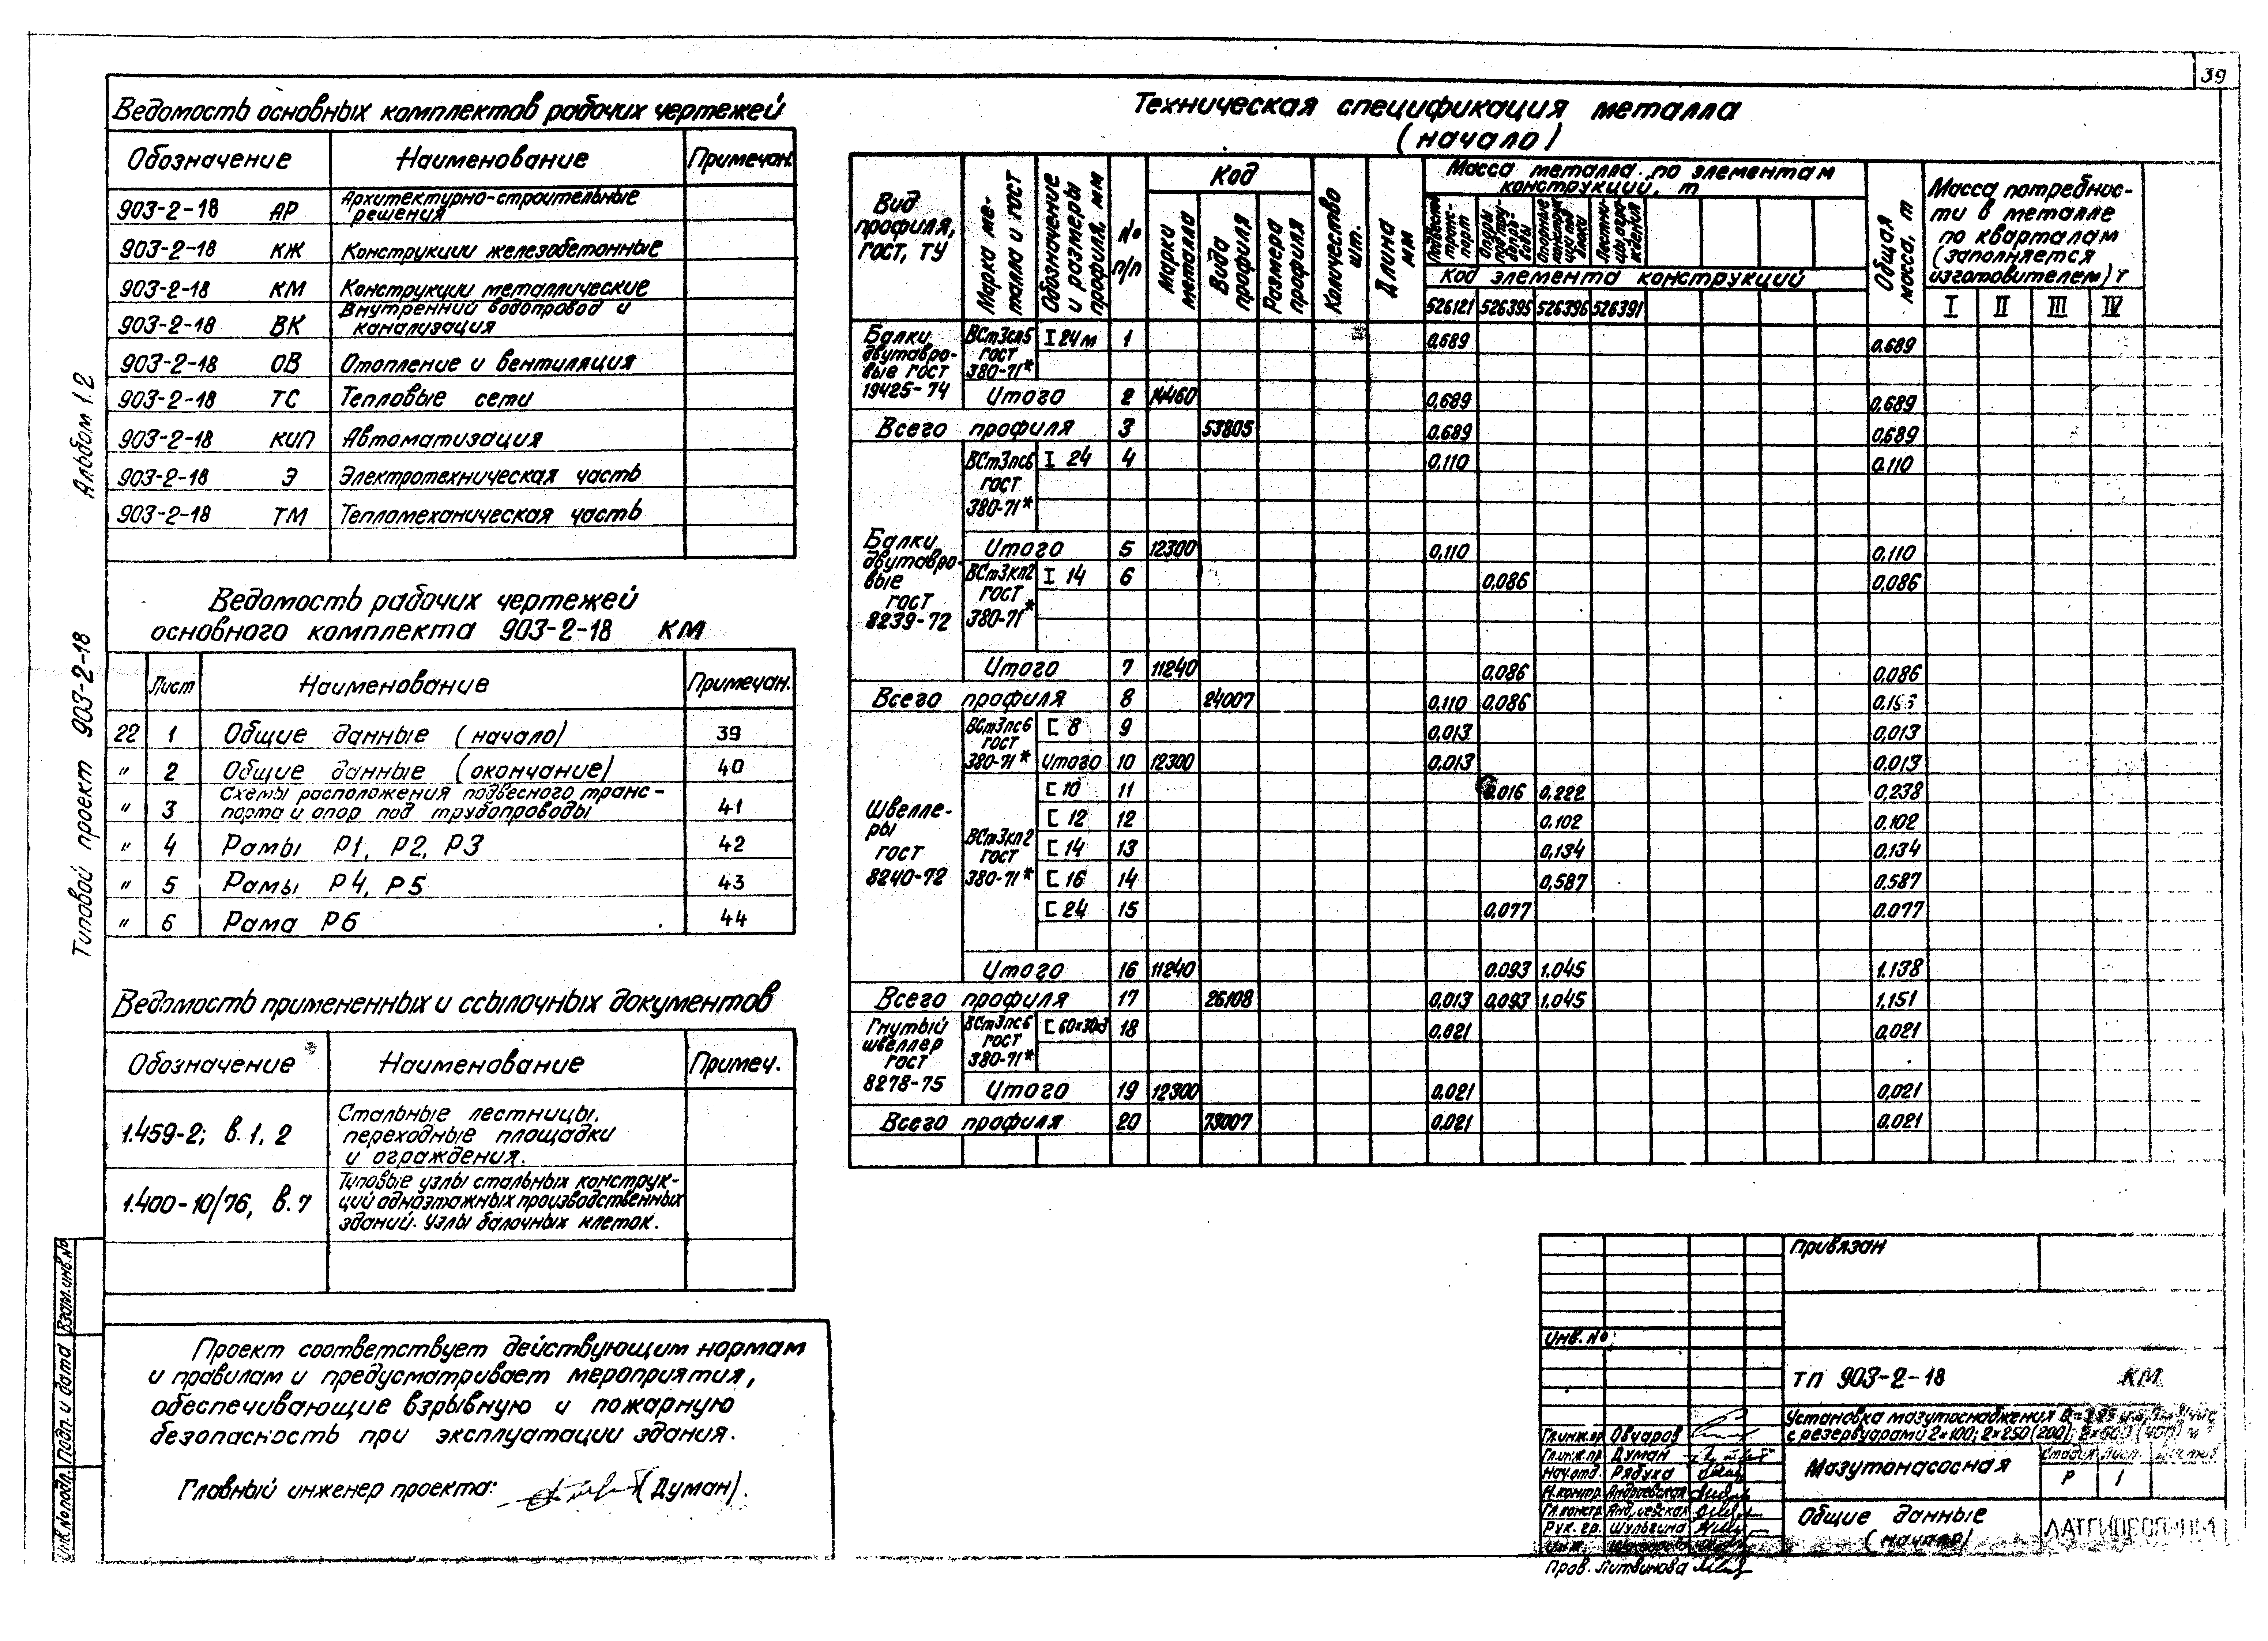 39
Ведомость основных комплектов рабочих чертежей
Обозначение Наименование Примечан.
903-2-18 АР Архитектурно-строительные решения
903-2-18 КЖ Конструкции железобетонные
903-2-18 КМ Конструкции металлические
903-2-18 ВК Внутренний водопровод и канализация
903-2-18 ОВ Отопление и вентиляция
903-2-18 ТС Тепловые сети
903-2-18 КИП Автоматизация
903-2-18 Э Электротехническая часть
903-2-18 ТМ Тепломеханическая часть
Ведомость рабочих чертежей
основного комплекта 903-2-18 КМ
Лист Наименование Примечан.
22 1 Общие данные (начало) 39
" 2 Общие данные (окончание) 40
" 3 Схемы расположения подвесного транс-
порта и опор под трубопроводы 41
" 4 Рамы Р1, Р2, Р3 42
" 5 Рамы Р4, Р5 43
" 6 Рама Р6 44
Ведомость примененных и ссылочных документов
Обозначение Наименование Примеч.
1.459-2; в.1, 2 Стальные лестницы,
переходные площадки
и ограждения.
1.400-10/76, в.7 Типовые узлы стальных конструк-
ций одноэтажных производственных
зданий. Узлы балочных клеток.
Проект соответствует действующим нормам
и правилам и предусматривает мероприятия,
обеспечивающие взрывную и пожарную
безопасность при эксплуатации здания.
Главный инженер проекта: (Думан).
Альбом 1.2
Типовой проект 903-2-18
Взам.инв.№
Подп. и дата
Инв.№ подл.
Техническая спецификация металла
(начало)
Вид профиля, ГОСТ, ТУ
Марка ме-
талла и гост
Обозначение и размеры профиля, мм
№ п/п
Код
Марки металла
Вида профиля
Размера профиля
Количество шт.
Длина мм
Масса металла по элементам
конструкций, т
Подвесной транс-
порт
Опоры под тру-
бопро-
воды
Опорные
Лестни-
цы, огра-
ждения
Код элемента конструкций
526121 526395 526396 526391
Общая масса, т
Масса потребнос-
ти в металле
по кварталам
(заполняется
изготовителем) т
I II III IV
Балки двутавро-
вые гост 19425-74
ВСт3сп5 гост 380-71*
I 24м 1 0.689 0.689
Итого 2 14460 0,689 0.689
Всего профиля 3 53805 0.689 0,689
Балки двутавро-
вые гост 8239-72
ВСт3пс6 гост 380-71*
I 24 4 0,110 0.110
Итого 5 12300 0,110 0,110
ВСт3кп2 гост 380-71*
I 14 6 0,086 0,086
Итого 7 11240 0,086 0,086
Всего профиля 8 24007 0,110 0,086
Швелле-
ры гост 8240-72
ВСт3пс6 гост 380-71*
[ 8 9 0.013 0.013
Итого 10 12300 0,013 0.013
ВСт3кп2 гост 380-71*
[ 10 11 0.016 0.222 0,238
[ 12 12 0.102 0.102
[ 14 13 0,134 0,134
[ 16 14 0,587 0.587
[ 24 15 0,077 0.077
Итого 16 11240 0.093 1.045 1.138
Всего профиля 17 26108 0,013 0,093 1.045 1,151
Гнутый швеллер гост 8278-75
ВСт3пс6 гост 380-71*
[ 60×30×3 18 0.021 0.021
Итого 19 12300 0.021 0,021
Всего профиля 20 73007 0.021 0.021
Привязан
Инв. №
ТП 903-2-18 КМ
Установка мазутоснабжения
с резервуарами 2×100; 2×250 (200);
Мазутонасосная
Стадия Лист Листов
Р 1
Общие данные
(начало)
Гл.инж.пр Овчаров
Гл.инж.пр Думан
Нач.отд. Рябуха
Н.контр. Андриевская
Гл.констр. Андриевская
Рук. гр. Шульгина
Инж.
Пров. Литвинова